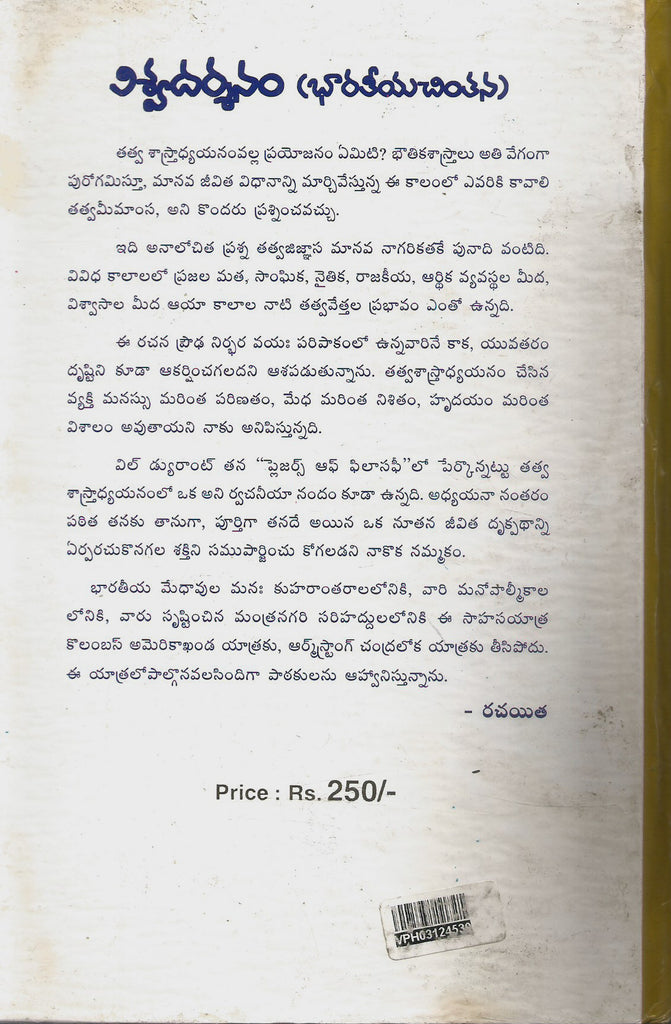 విశ్వదర్శనం (భారతీయచింతన)
తత్వ శాస్త్రాధ్యయనంవల్ల ప్రయోజనం ఏమిటి? భౌతికశాస్త్రాలు అతి వేగంగా
పురోగమిస్తూ, మానవ జీవిత విధానాన్ని మార్చివేస్తున్న ఈ కాలంలో ఎవరికి కావాలి
తత్వమీమాంస, అని కొందరు ప్రశ్నించవచ్చు.
ఇది అనాలోచిత ప్రశ్న తత్వజిజ్ఞాస మానవ నాగరికతకే పునాది వంటిది.
వివిధ కాలాలలో ప్రజల మత, సాంఘిక, నైతిక, రాజకీయ, ఆర్థిక వ్యవస్థల మీద,
విశ్వాసాల మీద ఆయా కాలాల నాటి తత్వవేత్తల ప్రభావం ఎంతో ఉన్నది.
ఈ రచన ప్రౌఢ నిర్భర వయః పరిపాకంలో ఉన్నవారినే కాక, యువతరం
దృష్టిని కూడా ఆకర్షించగలదని ఆశపడుతున్నాను. తత్వశాస్త్రాధ్యయనం చేసిన
వ్యక్తి మనస్సు మరింత పరిణతం, మేధ మరింత నిశితం, హృదయం మరింత
విశాలం అవుతాయని నాకు అనిపిస్తున్నది.
విల్ డ్యురాంట్ తన "ప్లెజర్స్ ఆఫ్ ఫిలాసఫీ"లో పేర్కొన్నట్టు తత్వ
శాస్త్రాధ్యయనంలో ఒక అని ర్వచనీయా నందం కూడా ఉన్నది. అధ్యయనా నంతరం
పఠిత తనకు తానుగా, పూర్తిగా తనదే అయిన ఒక నూతన జీవిత దృక్పథాన్ని
ఏర్పరచుకొనగల శక్తిని సముపార్జించు కోగలడని నాకొక నమ్మకం.
భారతీయ మేధావుల మనః కుహరాంతరాలలోనికి, వారి మనోవాల్మీకాల
లోనికి, వారు సృష్టించిన మంత్రనగరి సరిహద్దులలోనికి ఈ సాహసయాత్ర
కొలంబస్ అమెరికాఖండ యాత్రకు, ఆర్మ్‌స్ట్రాంగ్ చంద్రలోక యాత్రకు తీసిపోదు.
ఈ యాత్రలోపాల్గొనవలసిందిగా పాఠకులను ఆహ్వానిస్తున్నాను.
- రచయిత
Price : Rs. 250/-